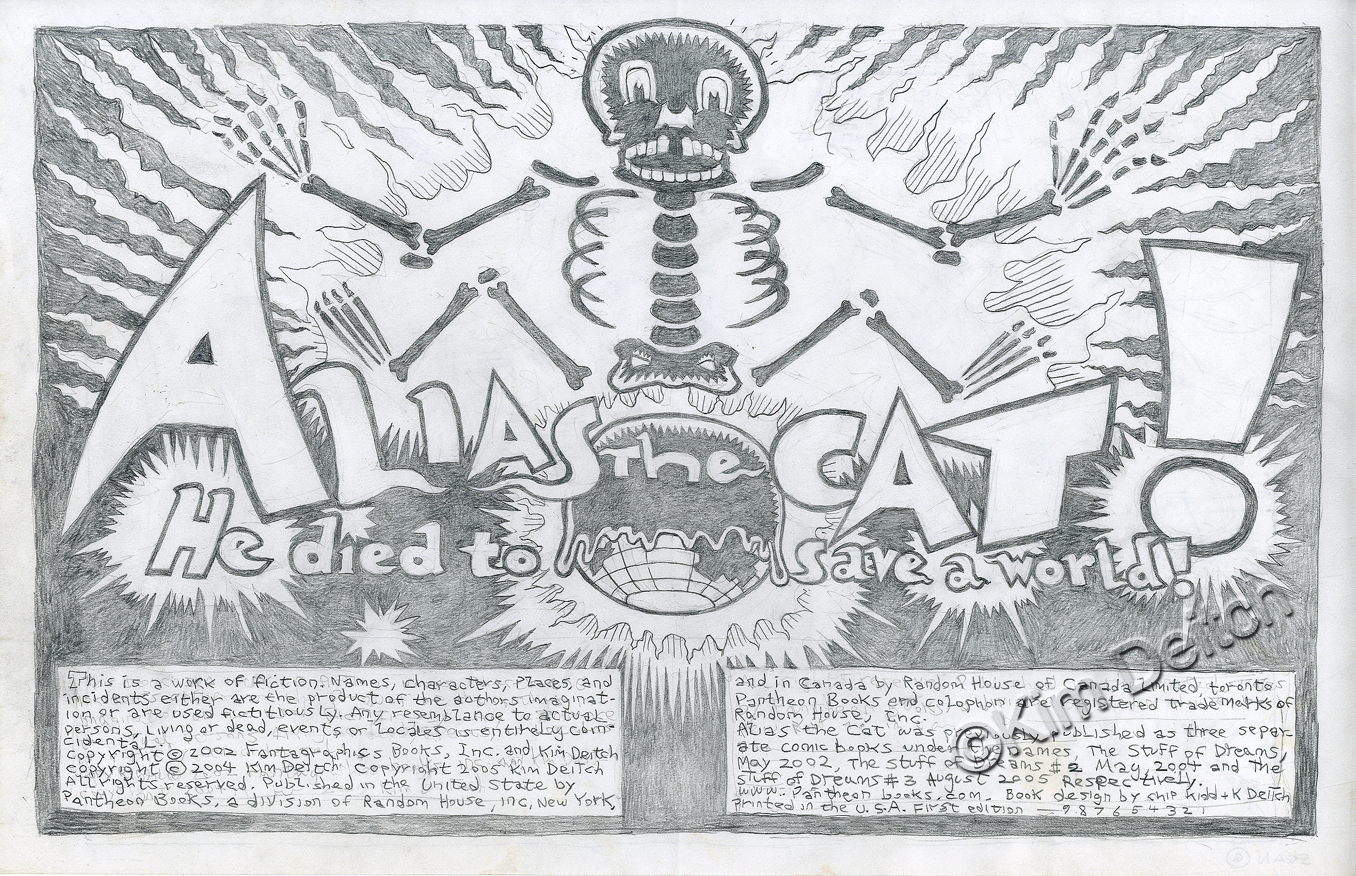 ALIAS The CAT!
He died to save a world!
This is a work of fiction. Names, characters, places, and
incidents either are the product of the authors imaginat-
ion or are used fictitiously. Any resemblance to actual
persons, living or dead, events or locales is entirely coin-
cidental.
copyright © 2002 Fantagraphics Books, Inc. and Kim Deitch
copyright © 2004 Kim Deitch copyright 2005 Kim Deitch
All rights reserved. Published in the United State by
Pantheon Books, a division of Random House, inc, New York,
and in Canada by Random House of Canada Limited toronto
Pantheon Books and colophon are registered trade marks of
Random House, Inc.
Alias the Cat was published as three separ-
ate comic books under names, The Stuff of Dreams,
May 2002, The Stuff of Dreams #2 May, 2004 and The
Stuff of Dreams #3 August 2005 Respectively.
www. Pantheon books.com. Book design by ship Kidd + K Deitch
printed in the U.S.A. First edition — 9 8 7 6 5 4 3 2 1
©Kim Deitch